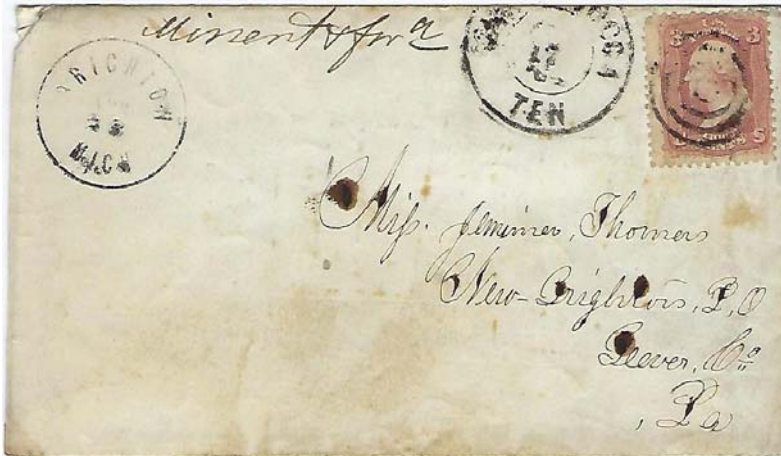 Missent & for'd
BRIGHTON
MICH
TEN
3 3
U S
Miss. Jemimer, Thomers
New-Brighton, P, O
Bever, Co
, Pa